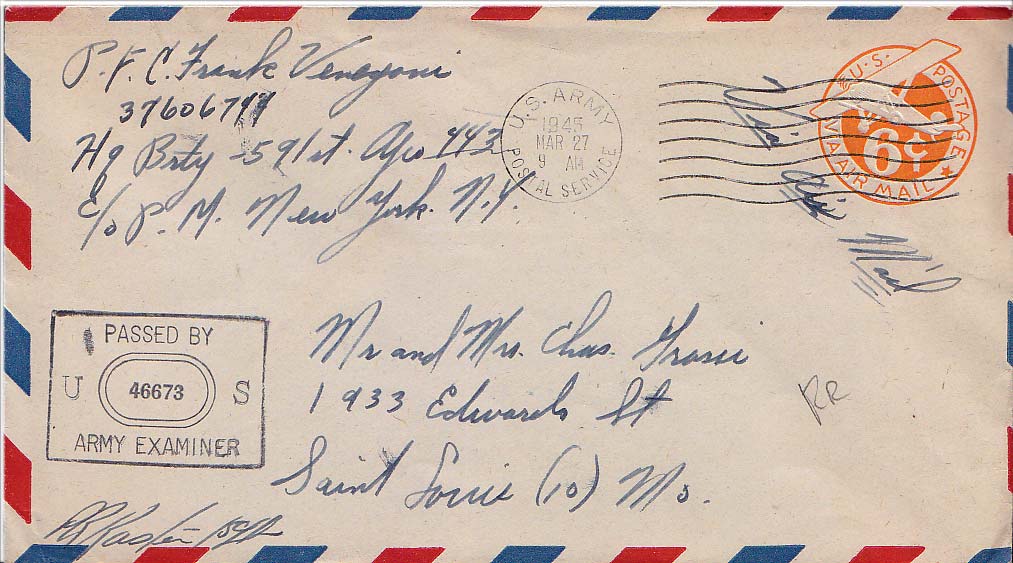 P.F.C. Frank Venegoni
Hq Brty - 591st. Apo 442
C/o P.M. New York. N.Y.
U.S. ARMY
1945
MAR 27
9 AM
POSTAL SERVICE
U.S. POSTAGE
6¢
VIA AIR MAIL
Via Air Mail
PASSED BY
U 46673 S
ARMY EXAMINER
Mr and Mrs. Chas. Grassi
1933 Edwards St
Saint Louis (10) Mo.
RR